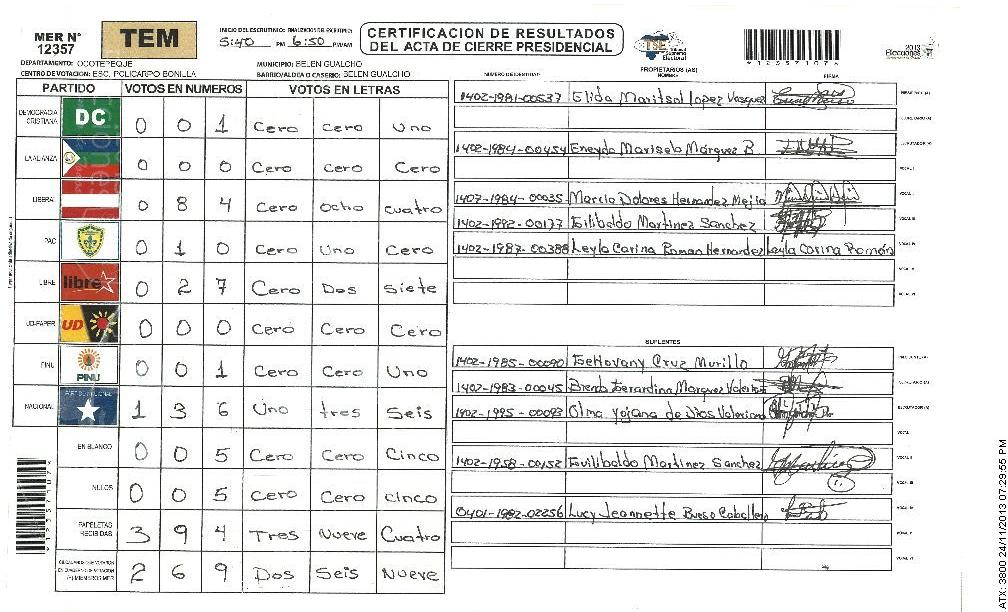 MER N° 12357
TEM
INICIO DEL ESCRUTINIO: FINALIZACION DEL ESCRUTINIO:
5:40 PM 6:50 PM/AM
CERTIFICACION DE RESULTADOS
DEL ACTA DE CIERRE PRESIDENCIAL
TSE Tribunal Supremo Electoral
2013
Elecciones
123571074
DEPARTAMENTO: OCOTEPEQUE
MUNICIPIO: BELEN GUALCHO
CENTRO DE VOTACION: ESC. POLICARPO BONILLA
BARRIO/ALDEA O CASERIO: BELEN GUALCHO
PARTIDO VOTOS EN NUMEROS VOTOS EN LETRAS
DEMOCRACIA CRISTIANA DC 0 0 1 Cero Cero Uno
LA ALIANZA 0 0 0 Cero Cero Cero
LIBERAL 0 8 4 Cero Ocho cuatro
PAC 0 1 0 Cero Uno Cero
LIBRE libre 0 2 7 Cero Dos Siete
UD-FAPER UD 0 0 0 Cero Cero Cero
PINU PINU 0 0 1 Cero Cero Uno
NACIONAL 1 3 6 Uno tres Seis
EN BLANCO 0 0 5 Cero Cero Cinco
NULOS 0 0 5 Cero Cero cinco
PAPELETAS RECIBIDAS 3 9 4 Tres Nueve Cuatro
(+) MIEMBROS MER 2 6 9 Dos Seis Nueve
NUMERO DE IDENTIDAD PROPIETARIOS (AS) NOMBRE FIRMA
1402-1981-00537 Elida Maritsol Lopez Vasquez
SECRETARIO (A)
1402-1984-00454 Eneyda Marisela Márquez B. ESCRUTADOR (A)
VOCAL I
1407-1984-00035 Marcia Dolores Hernandez Mejia
1402-1992-00177 Martinez Sanchez VOCAL III
1402-1987-00388 Leyla Carina Roman Hernandez Leyla Carina Román VOCAL IV
VOCAL V
VOCAL VI
SUPLENTES
1402-1985-00090 Cruz Murillo PRESIDENTE (A)
1402-1983-00045 Marquez SECRETARIO (A)
1402-1995-00093 de Dios ESCRUTADOR (A)
VOCAL I
1402-1958-00152 Martinez Sanchez VOCAL II
VOCAL III
0401-1982-02256 Lucy Jeannette Bueso Caballero VOCAL IV
VOCAL V
VOCAL VI
ATX: 3800 24/11/2013 07:29:55 PM